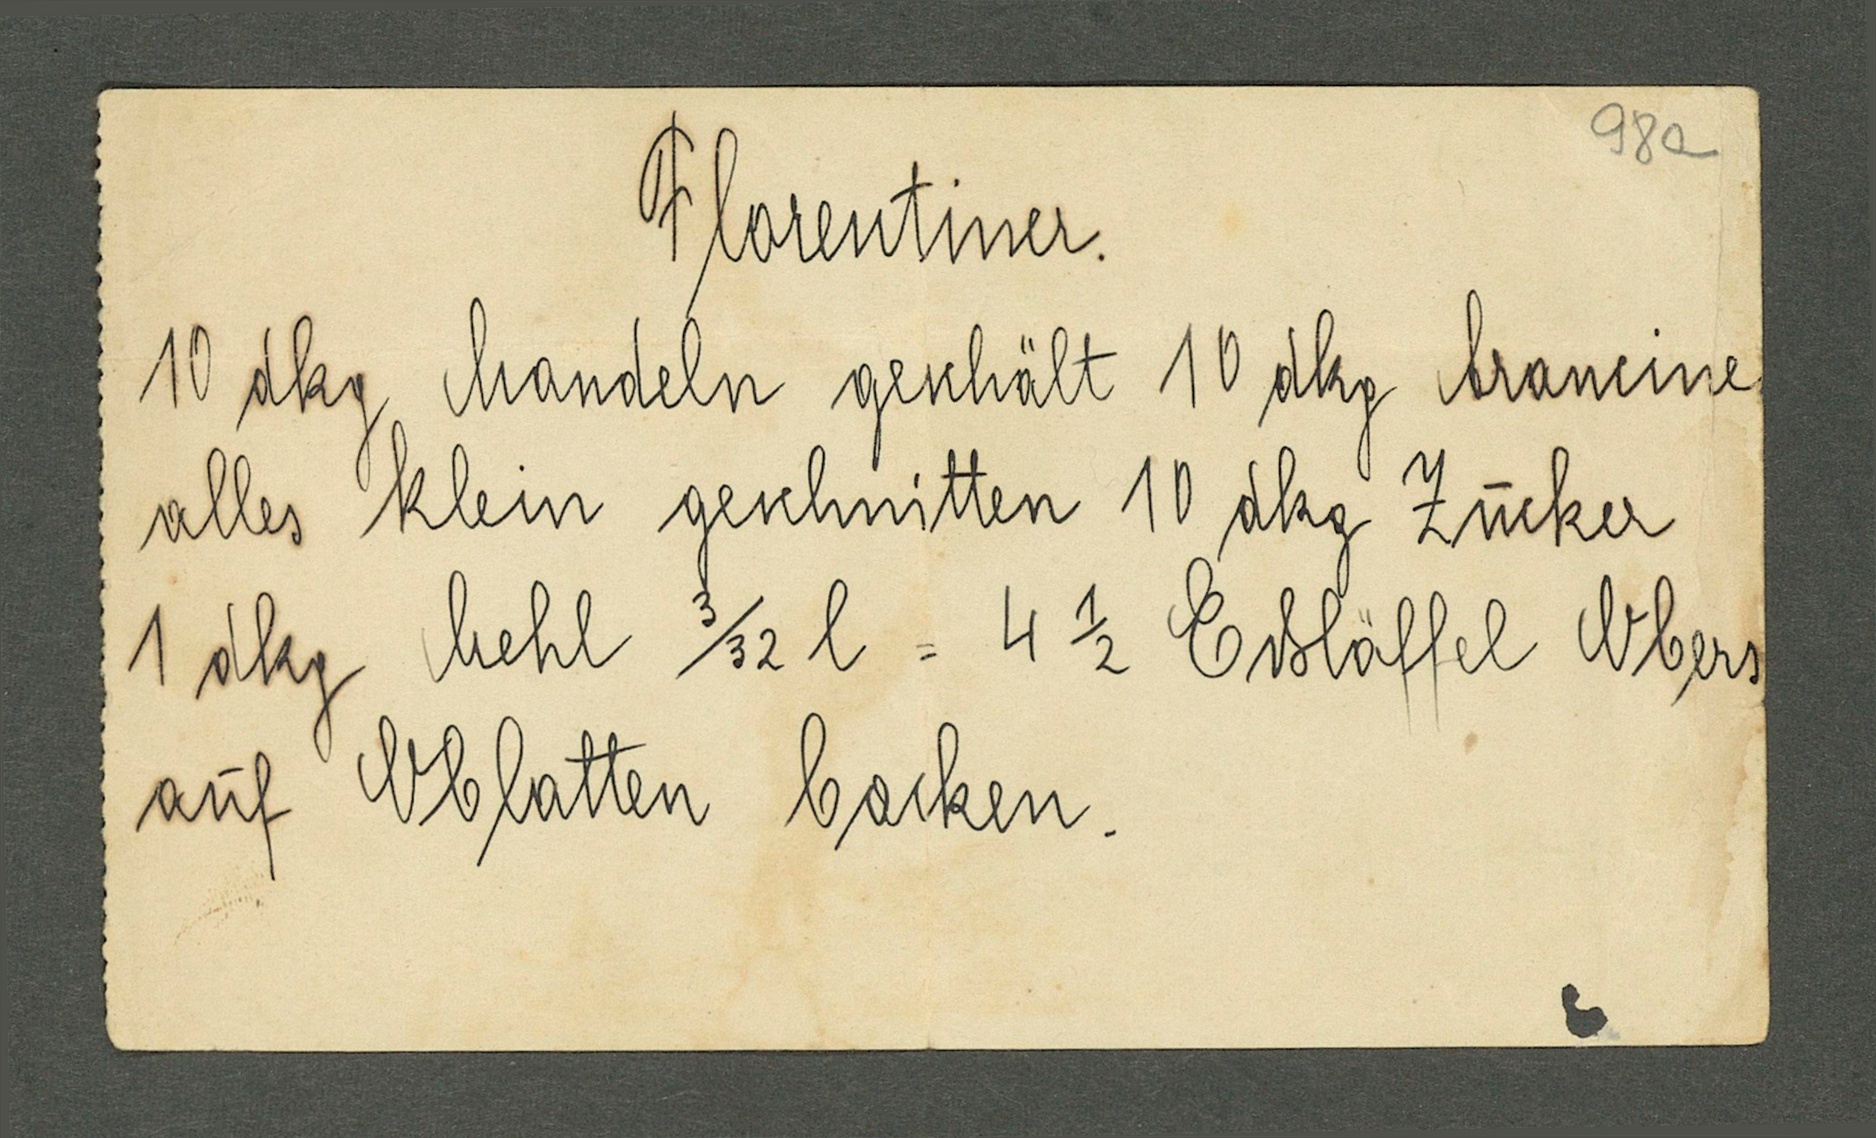 98a
Florentiner.
10 dkg Mandeln geschält 10 dkg Arancine
alles klein geschnitten 10 dkg Zucker
1 dkg Mehl 3/32 l = 4 1/2 Eßlöffel Obers
auf Oblatten backen.